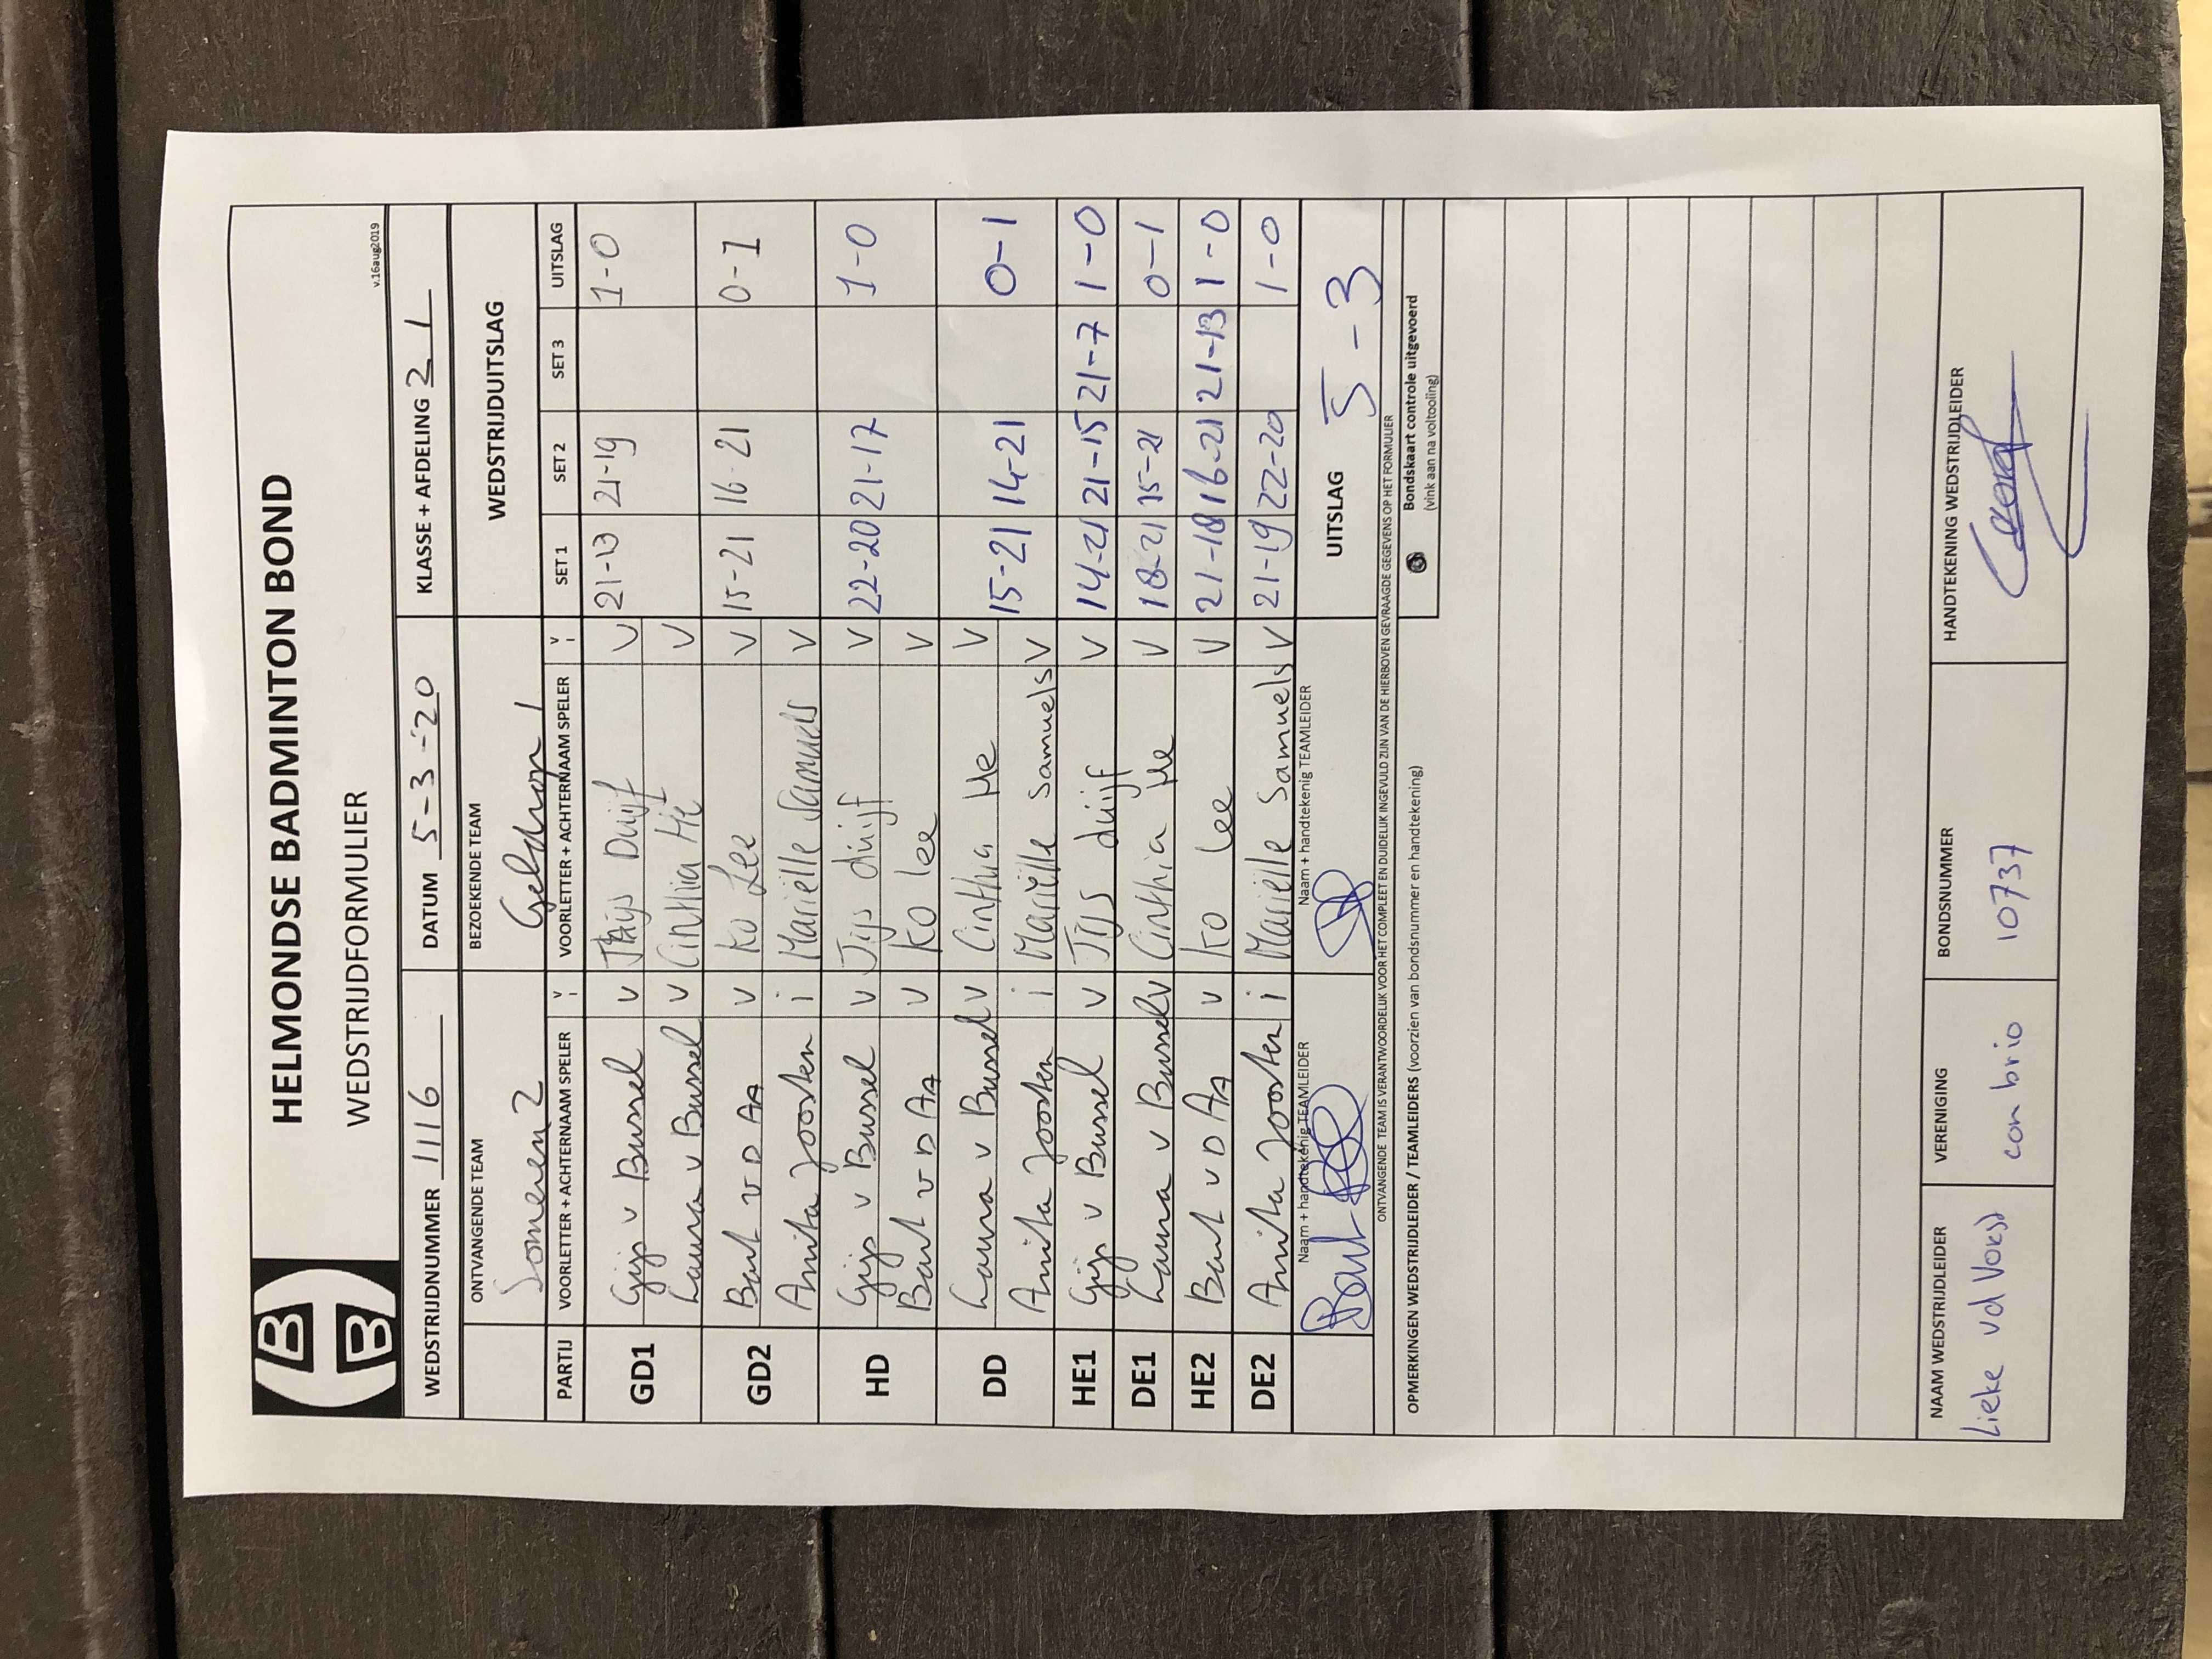 HELMONDSE BADMINTON BOND
WEDSTRIJDFORMULIER
v.16aug2019
WEDSTRIJDNUMMER 1116 DATUM 5-3-'20 KLASSE + AFDELING 2 1
ONTVANGENDE TEAM BEZOEKENDE TEAM WEDSTRIJDUITSLAG
Someren 2 Geldrop 1
PARTIJ VOORLETTER + ACHTERNAAM SPELER V i VOORLETTER + ACHTERNAAM SPELER V i SET 1 SET 2 SET 3 UITSLAG
GD1 Gijs v Bussel v Thijs Duijf V 21-13 21-19 1-0
Laura v Bussel v Cinthia He V
GD2 Bart v D AA v Ko Lee V 15-21 16-21 0-1
Anita Joosten i Mariëlle Samuels V
HD Gijs v Bussel v Tijs duijf V 22-20 21-17 1-0
Bart v D AA v Ko lee V
DD Laura v Bussel v Cinthia He V
Anita Joosten i Mariëlle Samuels V 15-21 14-21 0-1
HE1 Gijs v Bussel v Tijs duijf V 14-21 21-15 21-7 1-0
DE1 Laura v Bussel v Cinthia He V 18-21 15-21 0-1
HE2 Bart v D AA v Ko lee V 21-18 16-21 21-13 1-0
DE2 Anita Joosten i Mariëlle Samuels V 21-19 22-20 1-0
Naam + handtekenig TEAMLEIDER Naam + handtekenig TEAMLEIDER UITSLAG 5-3
Bart
ONTVANGENDE TEAM IS VERANTWOORDELIJK VOOR HET COMPLEET EN DUIDELIJK INGEVULD ZIJN VAN DE HIERBOVEN GEVRAAGDE GEGEVENS OP HET FORMULIER
OPMERKINGEN WEDSTRIJDLEIDER / TEAMLEIDERS (voorzien van bondsnummer en handtekening)
Bondskaart controle uitgevoerd
(vink aan na voltooiing)
NAAM WEDSTRIJDLEIDER VERENIGING BONDSNUMMER HANDTEKENING WEDSTRIJDLEIDER
Lieke vd Vorst con brio 10737